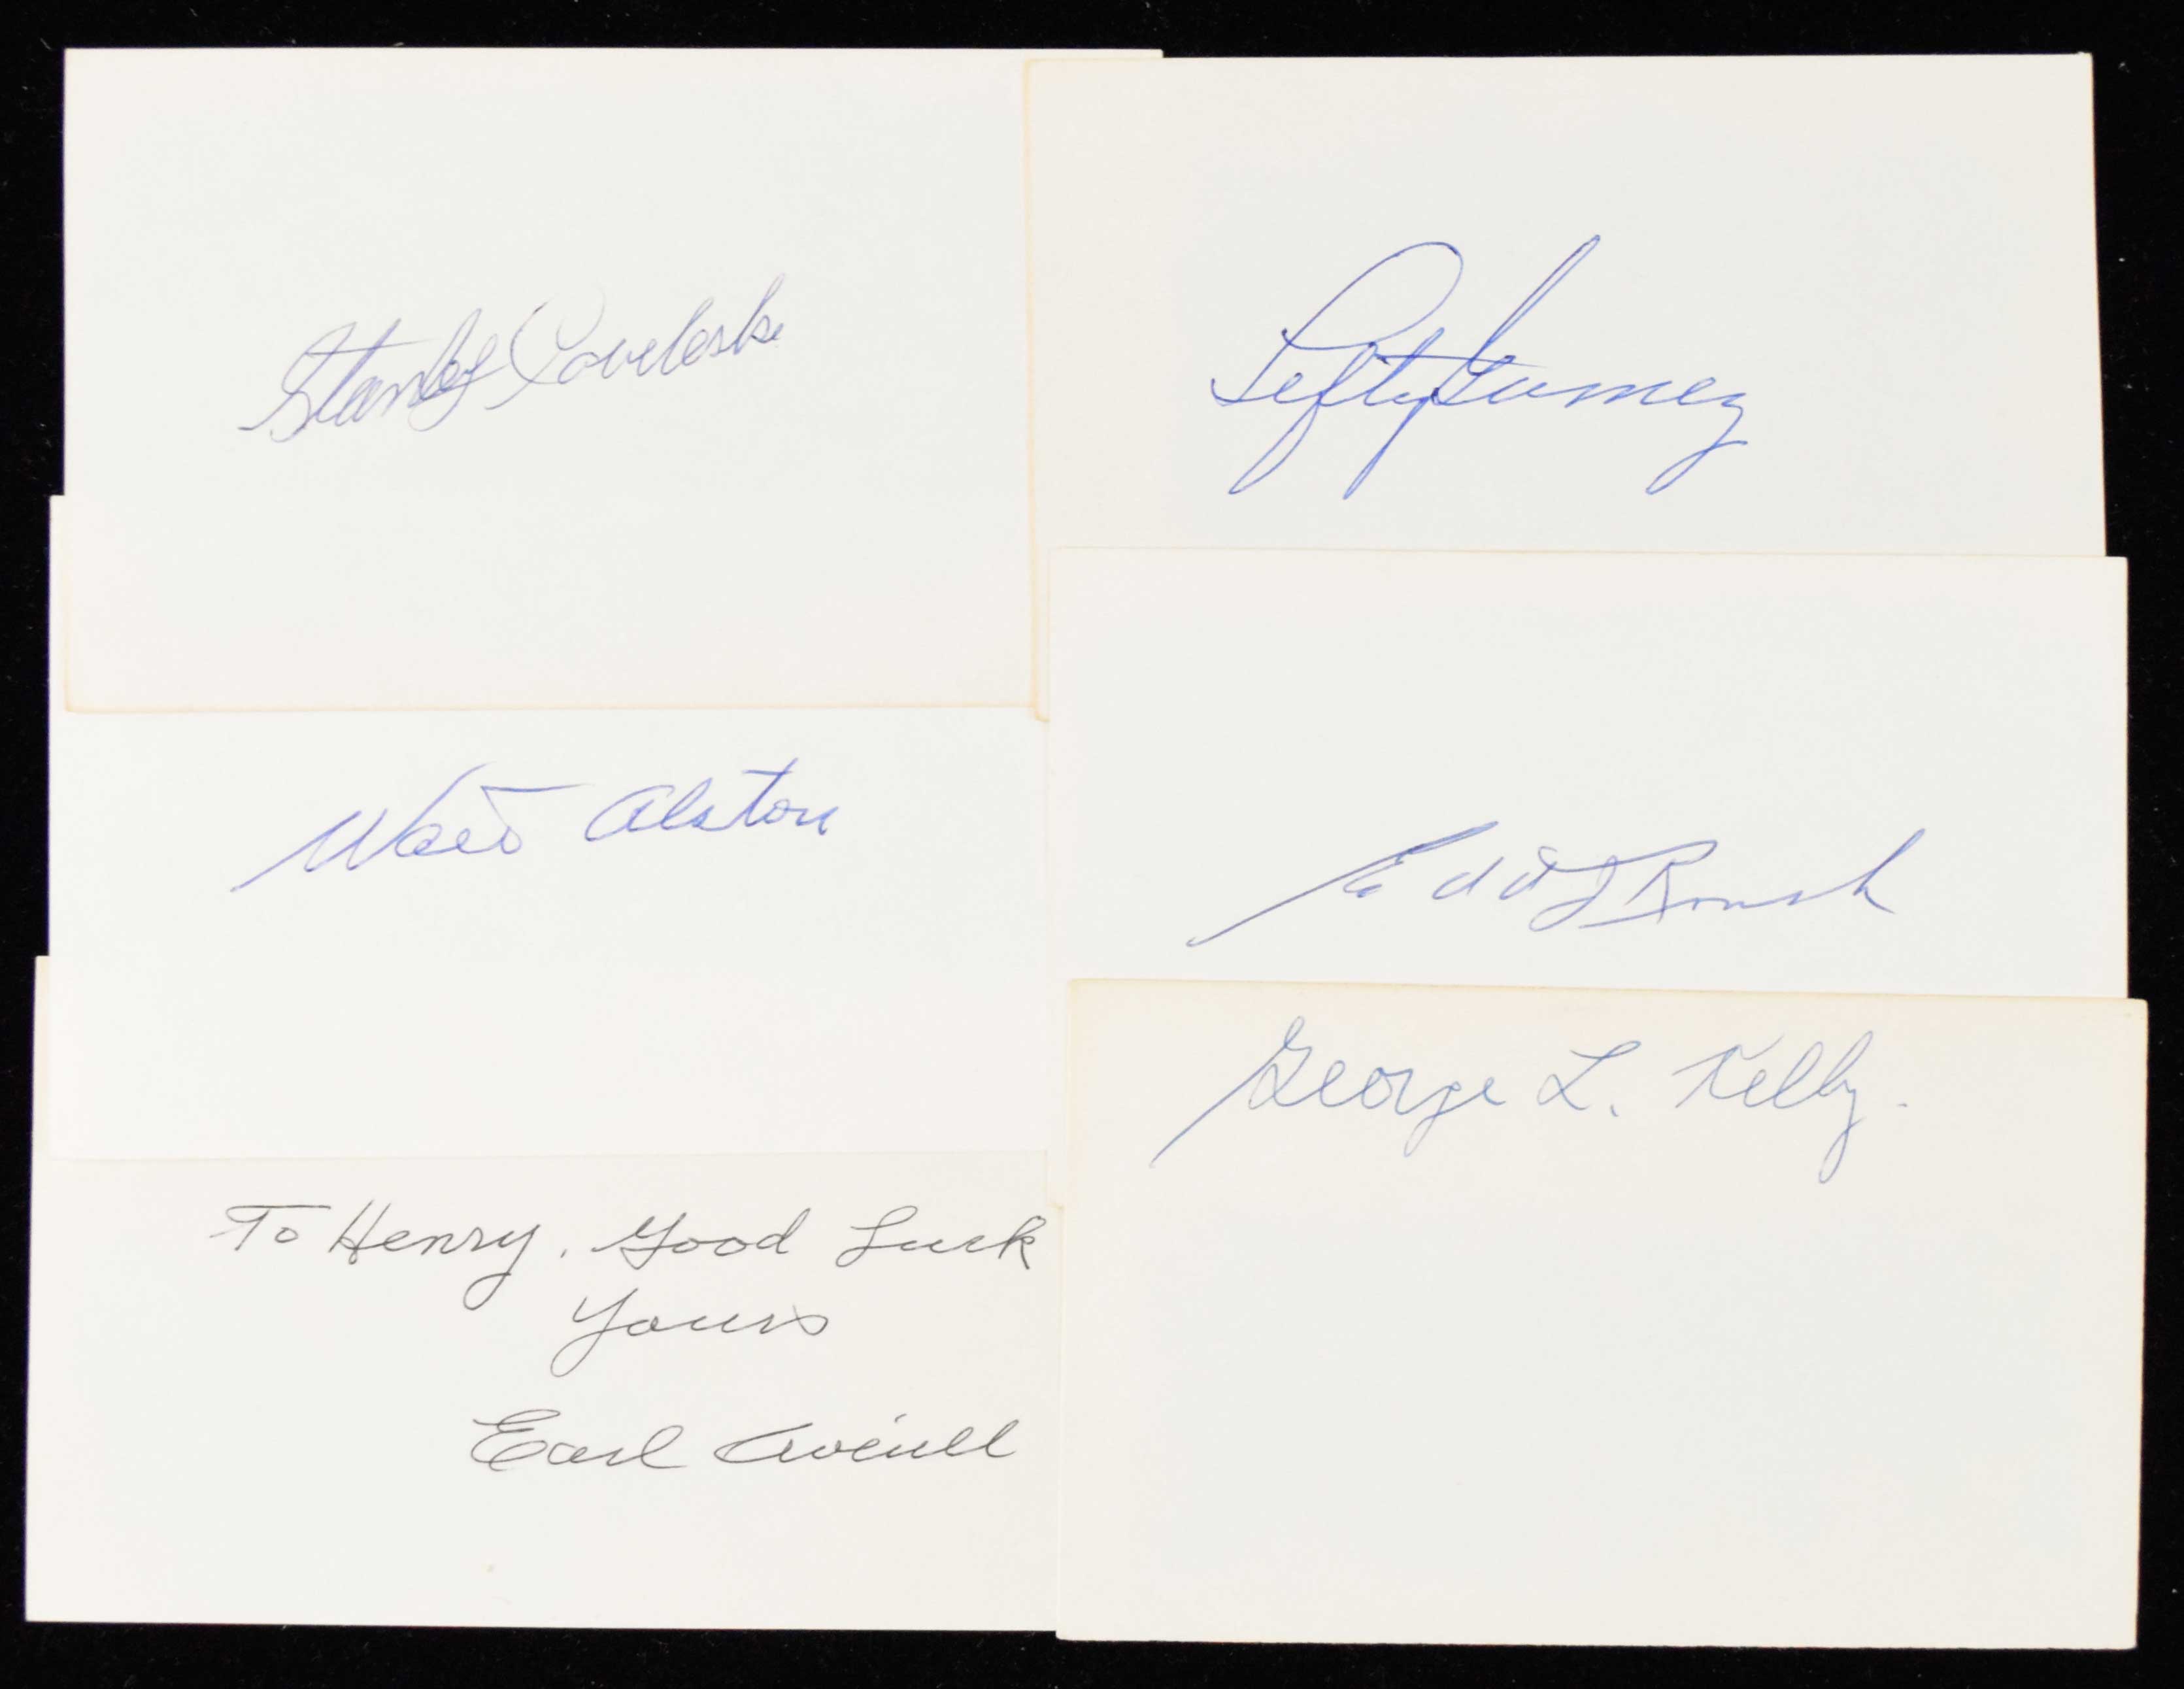 Stanley Coveleski
Lefty Gomez
Walt Alston
Edd J Roush
George L. Kelly.
To Henry, Good Luck
Yours
Earl Averill